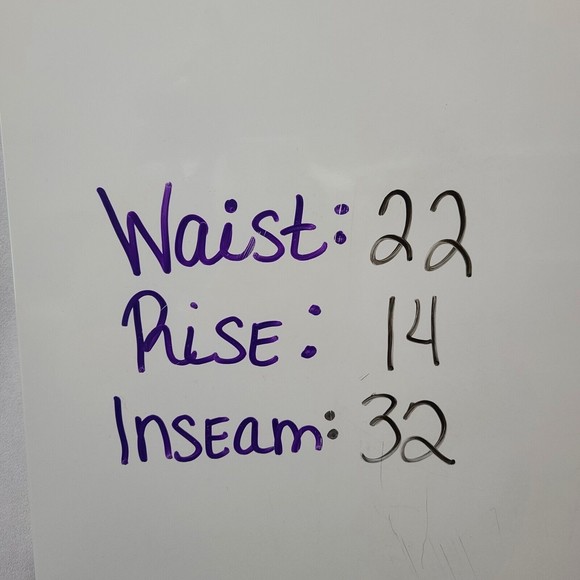 Waist: 22
Rise: 14
Inseam: 32